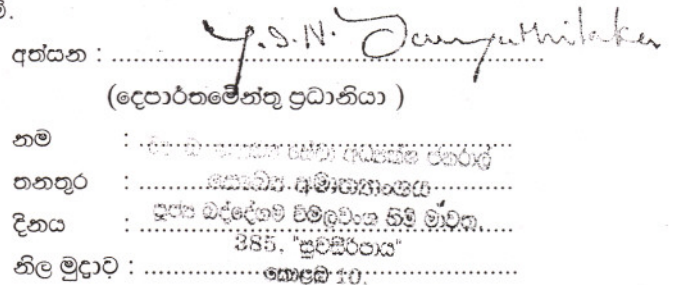 මි.
අත්සන : Y.S.N.
(දෙපාර්තමේන්තු ප්‍රධානියා )
නම : සේවා අධ්‍යක්ෂ ජනරාල්
තනතුර : සෞඛ්‍ය අමාත්‍යාංශය
දිනය : පූජ්‍ය බද්දේගම විමලවංශ හිමි මාවත,
385, "සුවසිරිපාය"
නිල මුද්‍රාව : කොළඹ 10.